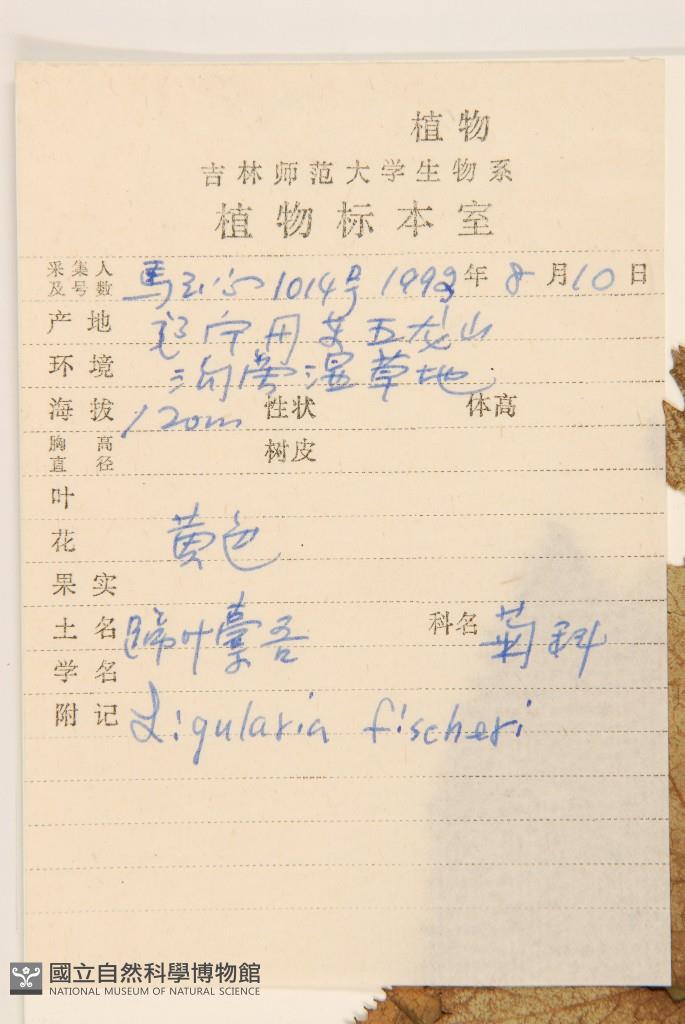 植物
吉林师范大学生物系
植物标本室
采集人及号数 馬 1014号 1992年 8月10日
产地 辽宁丹东五龙山
环境 沟旁湿草地
海拔 120m 性状 体高
胸高直径 树皮
叶
花 黄色
果实
土名 蹄叶橐吾 科名 菊科
学名
附记 Ligularia fischeri
國立自然科學博物館
NATIONAL MUSEUM OF NATURAL SCIENCE